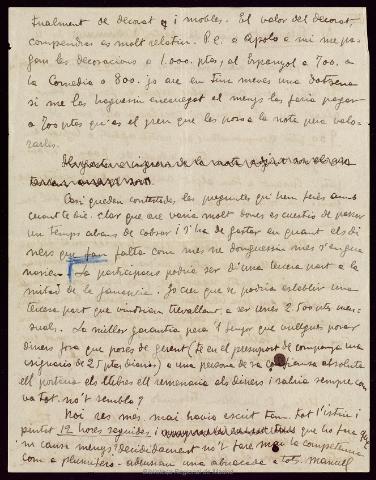 tualment de decorat i mobles. El valor del decorat,
compendras es molt relatiu. P.e. a Apolo a mi me pa-
gan les decoracions a 1.000 ptas, al Espanyol a 700. a
la Comedia a 800. jo are en tinc meves una dotsena
si me las haguessin encarregat el menys las faria pagar
a 700 ptes qu'es el preu que les poso a la nota per valo-
rarlas.
Aqui queden contestades les preguntes qu'hem feies amb
cuant te dic. Clar que are varia molt doncs es cuestió de passar
un temps abans de cobrar i s'ha de gastar en quant els di
ners que fan falta com mes ne donguessin mes s'engua
naria. La participacio podria ser d'una tercera part a la
mitad de la ganancia. Jo crec que se podria establir una
tercera part que vindriam trevallant a ser unes 2.500 ptes men-
suals. La millor garantia per l'senyor que volgues posar
diners fora que poses de gerent (Te en el presupost de companyia una
de 25 ptas diarias) a una persona de sa confiansa absoluta
ell portaria els llibres ell remenaria els diners i sabria sempre com
va tot. no't sembla?
Noi res mes mai havia escrit tan. tot l'istiu i
pintat 12 hores seguides i que ho fare qu'
m cansi menys. Decididament no't fare mai la competencia
com a plumifero. adeusiau una abrasada a tots. Manuel